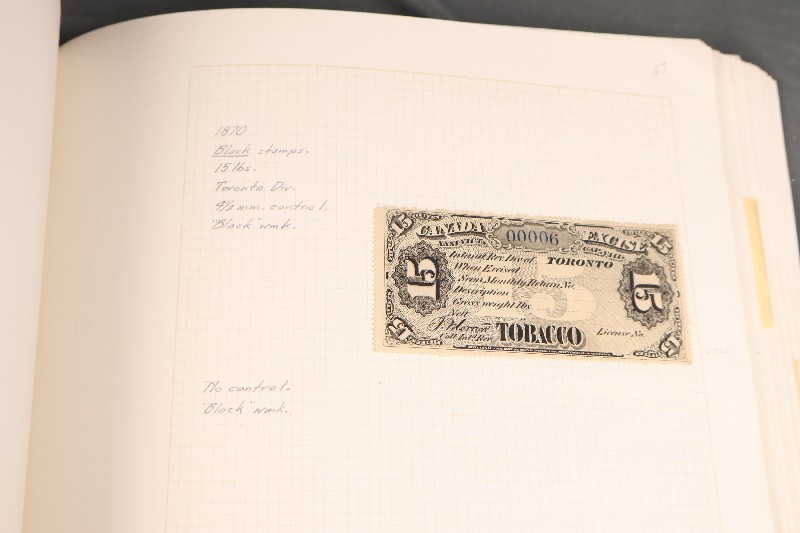 57
1870
Black stamps.
15 lbs.
Toronto Div.
4½ mm. control.
"Black" wmk.
15 CANADA 00006 EXCISE 15
Inland Rev. Div. of TORONTO
When Entered
Semi Monthly Return No.
Description
Gross weight lbs
Nett
15
15
Coll. Inld. Rev. TOBACCO License No.
15 15
No control.
"Black" wmk.